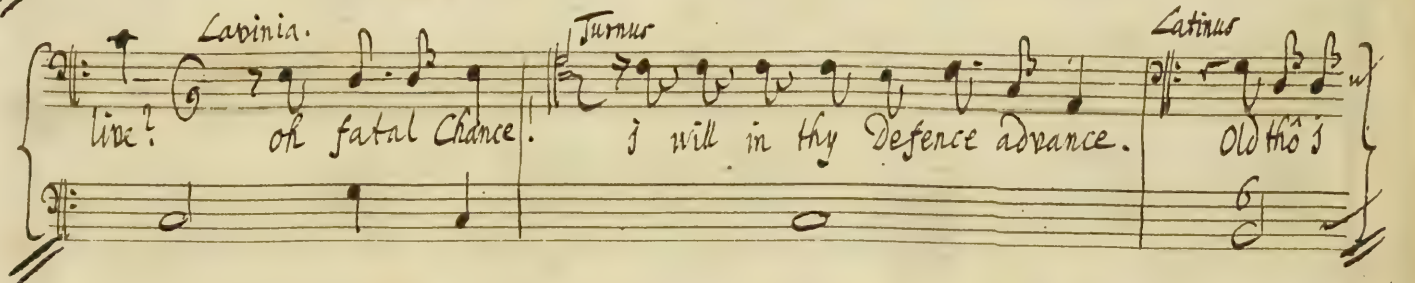 Lavinia. Turnus Latinus
live? oh fatal Chance! i will in thy Defence advance. Old thô i
6